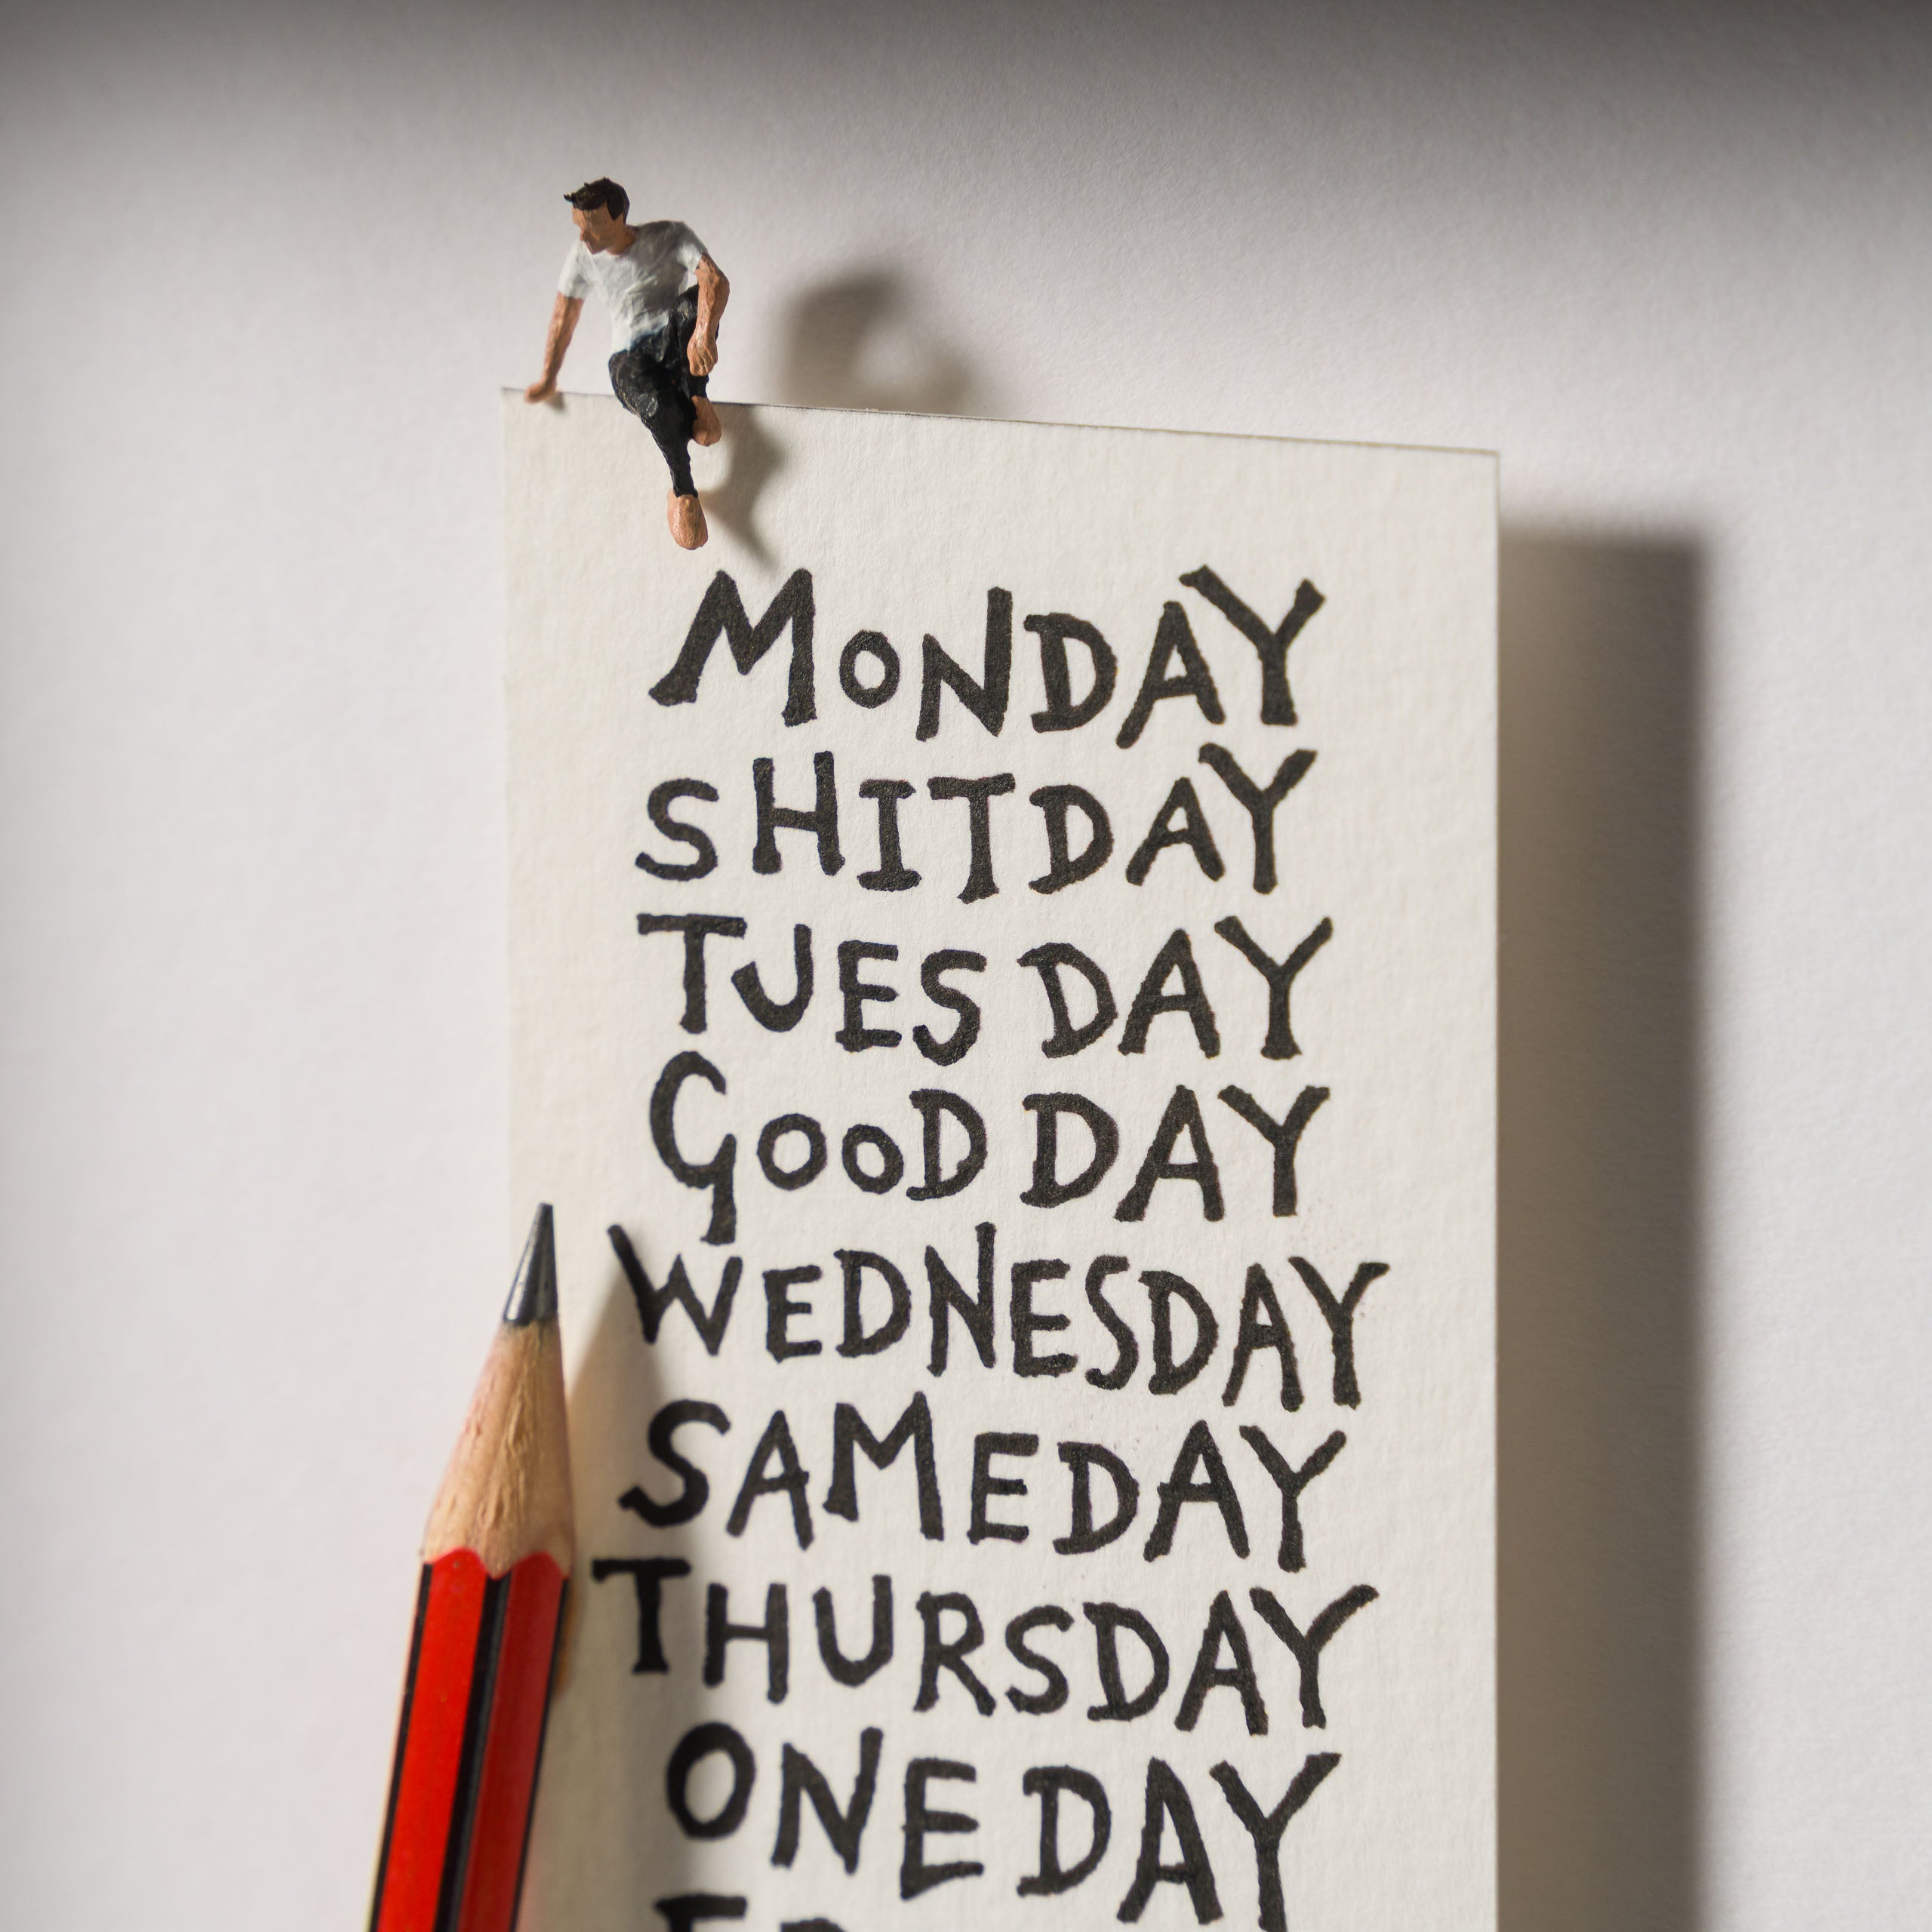 MONDAY
SHITDAY
TUESDAY
GOOD DAY
WEDNESDAY
SAMEDAY
THURSDAY
ONE DAY